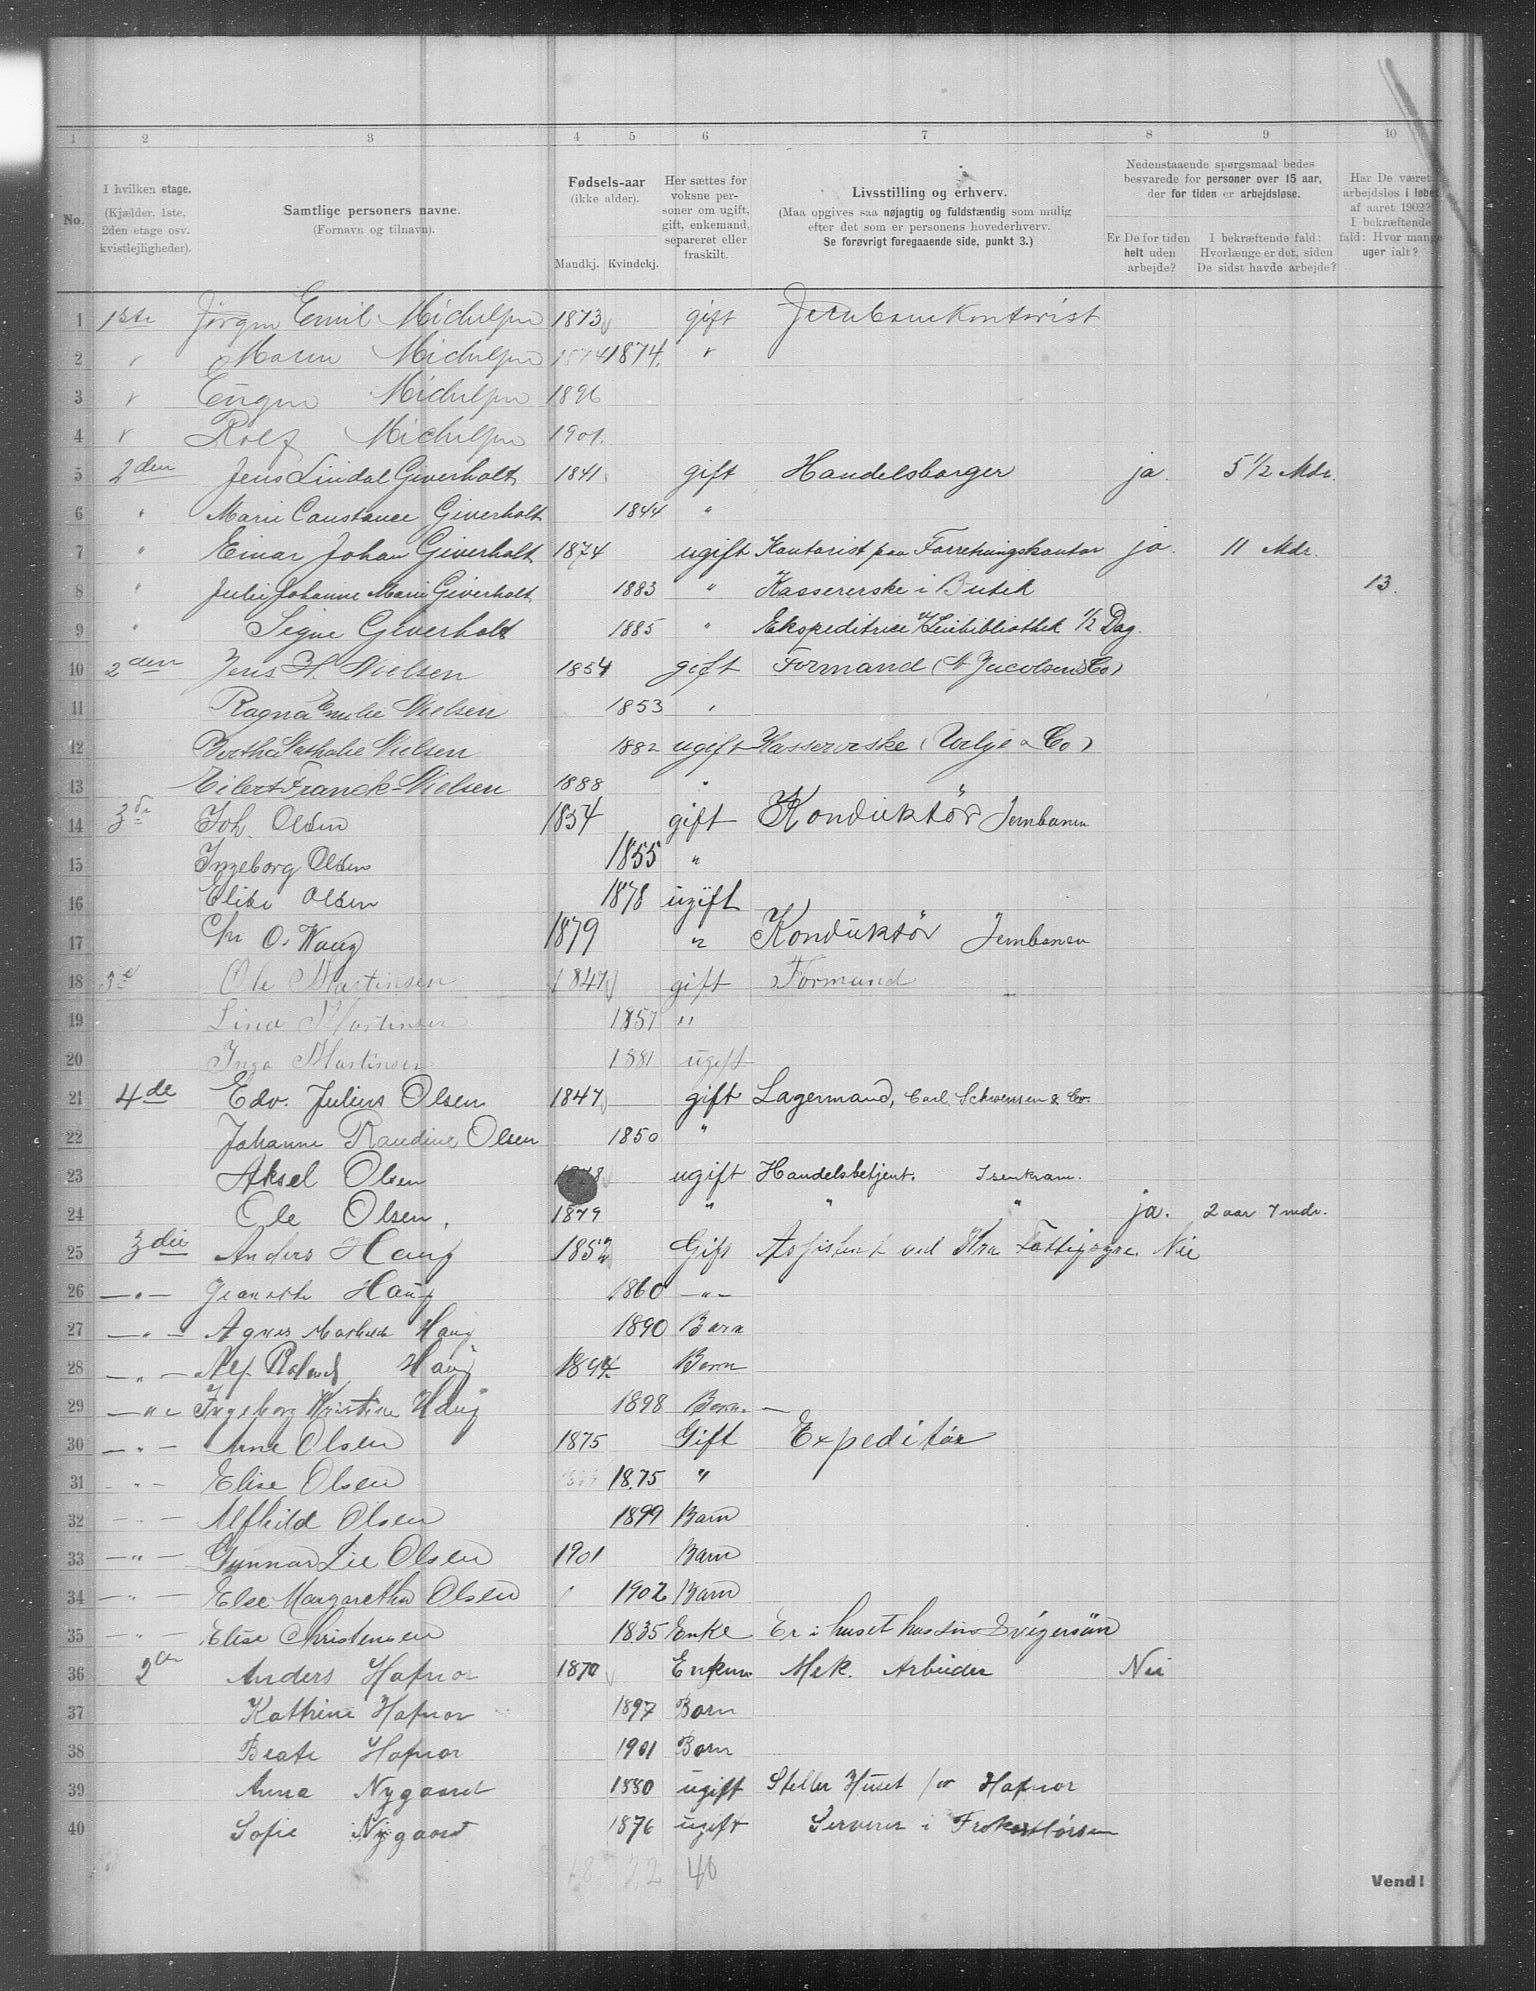 1 2 3 4 5 6 7 8 9 10
No.
I hvilken etage. (Kjælder, 1ste, 2den etage osv. kvistlejligheder).
Samtlige personers navne. (Fornavn og tilnavn).
Fødsels-aar (ikke alder). Mandkj. Kvindekj.
Her sættes for voksne personer om ugift, gift, enkemand, separeret eller fraskilt.
Livsstilling og erhverv. (Maa opgives saa nøjagtig og fuldstændig som mulig efter det som er personens hovederhverv. Se forøvrigt foregaaende side, punkt 3.)
Nedenstaaende spørgsmaal bedes besvarede for personer over 15 aar, der for tiden er arbejdsløse.
Er De for tiden helt uden arbejde?
I bekræftende fald: Hvorlænge er det, siden De sidst havde arbejde?
Har De været arbejdsløs i løbet af aaret 1902? I bekræftende fald: Hvor mange uger ialt?
1 1ste Jörgen Emil Michelsen 1873 gift Jernbanekontorist
2 " Maren Michelsen 1874 "
3 " Eugen Michelsen 1896
4 " Rolf Michelsen 1901.
5 2den Jens Lindal Giverholt 1841 gift Handelsborger ja. 5 1/2 Mdr.
6 " Marie Constance Giverholt 1844 "
7 " Einar Johan Giverholt 1874 ugift Kontorist paa Forretningskontor ja. 11 Mdr.
8 " Julie Johanne Marie Giverholt 1883 " Kassererske i Butik 13.
9 " Signe Giverholt 1885 " Ekspeditrice v/Leiebibliothek 1/2 Dag.
10 2den Jens H. Nielsen 1854 gift Formand (A Jacobsen & Co)
11 Ragna Emilie Nielsen 1853 "
12 Bertha Nathalie Nielsen 1882 ugift Kassererske ( & Co)
13 Eilert Franck-Nielsen 1888 "
14 3de Joh. Olsen 1854 gift Konduktör Jernbanen
15 Ingeborg Olsen 1855 "
16 Elise Olsen 1878 ugift
17 Chr O. Haug 1879 " Konduktör Jernbanen
18 3de Ole Martinsen 1847 gift Formand
19 Lina Martinsen 1857 "
20 Inga Martinsen 1881 ugift
21 4de Edv. Julius Olsen 1847 gift Lagermand, Carl Schwensen & Co.
22 Johanne Randine Olsen 1850 "
23 Aksel Olsen ugift Handelsbetjent. Isenkram.
24 Ole Olsen. 1879 " " " ja. 2 aar 7 mdr.
25 3die Anders Haug 1852 Gift Assistent ved Kra Fattigv. Nei
26 — " — Jeanette Haug 1860 — " —
27 — " — Agnes Haug 1890 Barn
28 — " — Alf Haug 1894. Barn
29 — " — Ingeborg Kristine Haug 1898 Barn. —
30 — " — Arne Olsen 1875 Gift Expeditör
31 — " — Elise Olsen 1875 "
32 — " — Alfhild Olsen 1899 Barn
33 — " — Gunnar Lie Olsen 1901 Barn
34 — " — Else Margaretha Olsen 1902 Barn
35 — " — Elise Christensen 1835 Enke Er i huset hos sin Svigersön
36 2den Anders Hafnor 1870 Enkem Mek. Arbeider Nei
37 Kathrine Hafnor 1897 Barn
38 Beate Hafnor 1901 Barn
39 Anna Nygaard 1880 ugift Steller Huset for Hafnor
40 Sofie Nygaard 1876 ugift Serverer i
18 22 40
Vend!